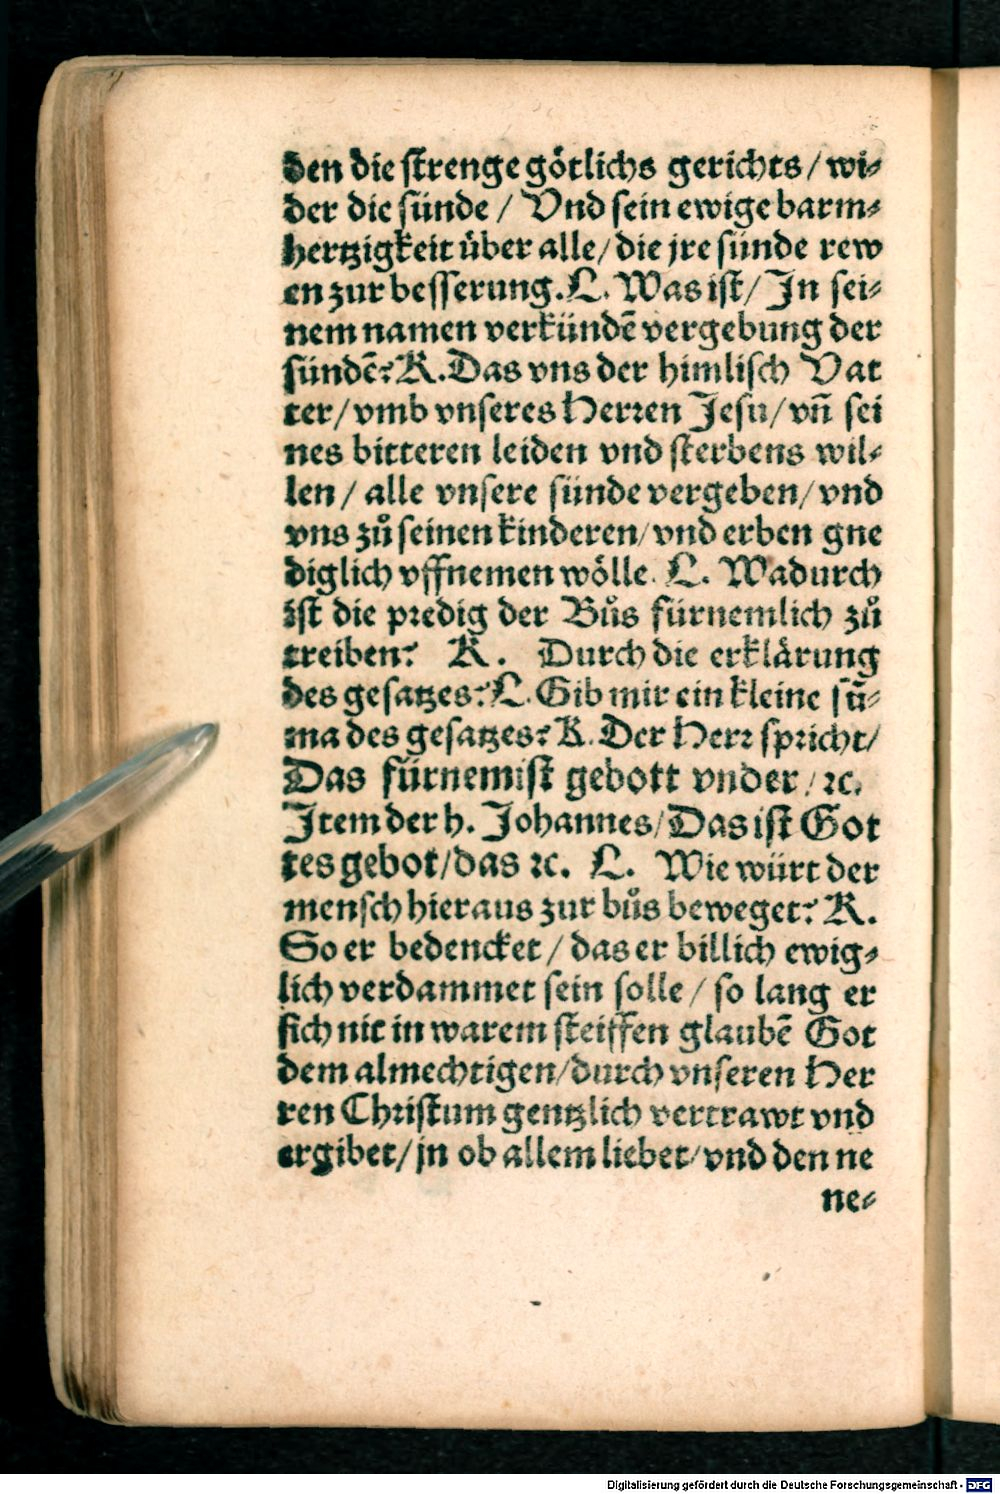 den die strenge götlichs gerichts/ wi⸗
der die sünde / Vnd sein ewige barm⸗
hertzigkeit über alle/ die jre sünde rew
en zur besserung. L. Was ist/ In sei⸗
nem namen verkündē vergebung der
sündē? K. Das vns der himlisch Vat
ter/ vmb vnseres Herren Jesu/ vñ sei
nes bitteren leiden vnd sterbens wil⸗
len / alle vnsere sünde vergeben/ vnd
vns zů seinen kinderen/ vnd erben gne
diglich vffnemen wölle. L. Wadurch
ist die predig der Bůs fürnemlich zů
treiben? K. Durch die erklärung
des gesatzes? L. Gib mir ein kleine sū⸗
ma des gesatzes? K. Der Herr spricht/
Das fürnemist gebott vnder / ꝛc.
Item der h. Johannes/ Das ist Got
tes gebot/ das ꝛc. L. Wie würt der
mensch hieraus zur bůs beweget? K.
So er bedencket / das er billich ewig⸗
lich verdammet sein solle / so lang er
sich nit in warem steiffen glaubē Got
dem almechtigen/ durch vnseren Her
ren Christum gentzlich vertrawt vnd
ergibet/ jn ob allem liebet/ vnd den ne
ne⸗
Digitalisierung gefördert durch die Deutsche Forschungsgemeinschaft - DFG